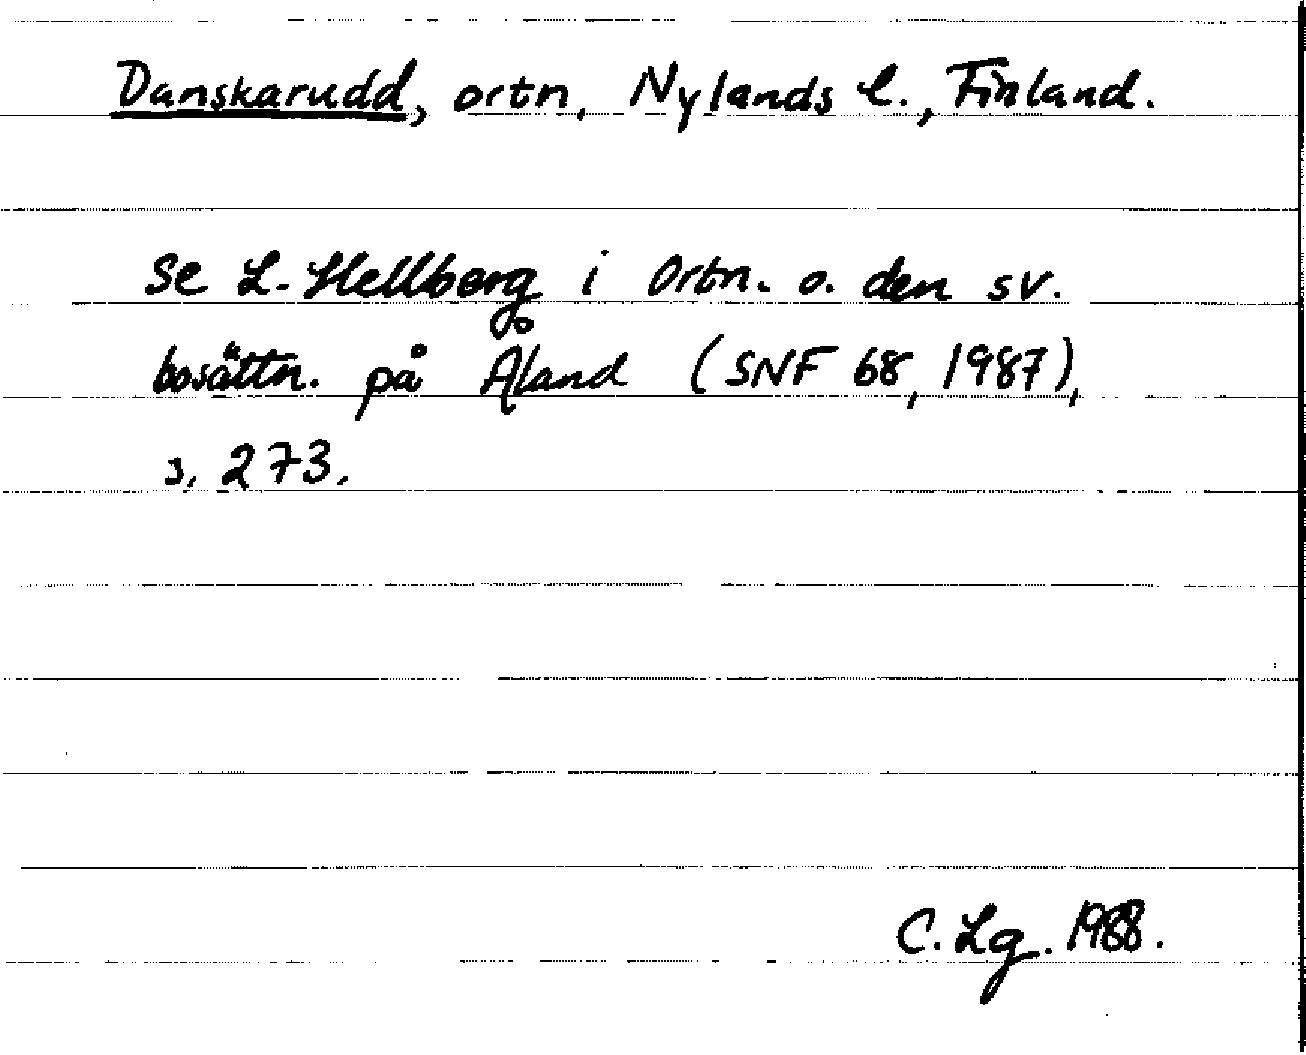 Danskarudd, ortn, Nylands l., Finland.
Se L. Hellberg i Ortn. o. den sv.
bosättn. på Åland (SNF 68, 1987),
s. 273.
C. Lg. 1988.